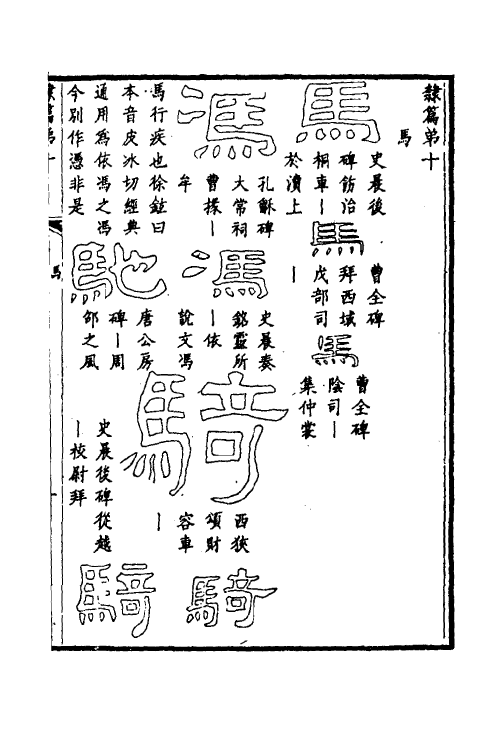 隸篇第十
馬
馬
史晨後
碑飭治
桐車丨
於瀆上
馬
曹全碑
拜西域
戊部司
丨
馬
曹全碑
陰司丨
集仲裳
馮
孔龢碑
大常祠
曹掾丨
牟
馮
史晨奏
銘靈所
丨依
說文馮
馬行疾也徐鉉曰
本音皮冰切經典
通用為依馮之馮
今別作憑非是
馳
唐公房
碑丨周
邵之風
騎
西狹
頌財
容車
丨
騎
史晨後碑從越
丨校尉拜
騎
隸篇第十
馬